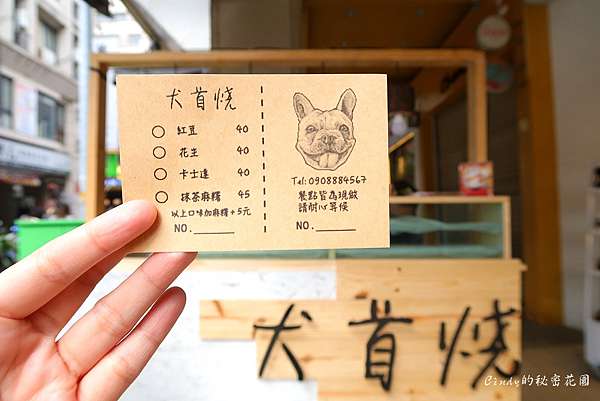 犬首燒
紅豆 40
花生 40
卡士達 40
抹茶麻糬 45
以上口味加麻糬+5元
NO.
Tel: 0908884567
餐點皆為現做
請耐心等候
NO.
犬首燒
Cindy的秘密花園